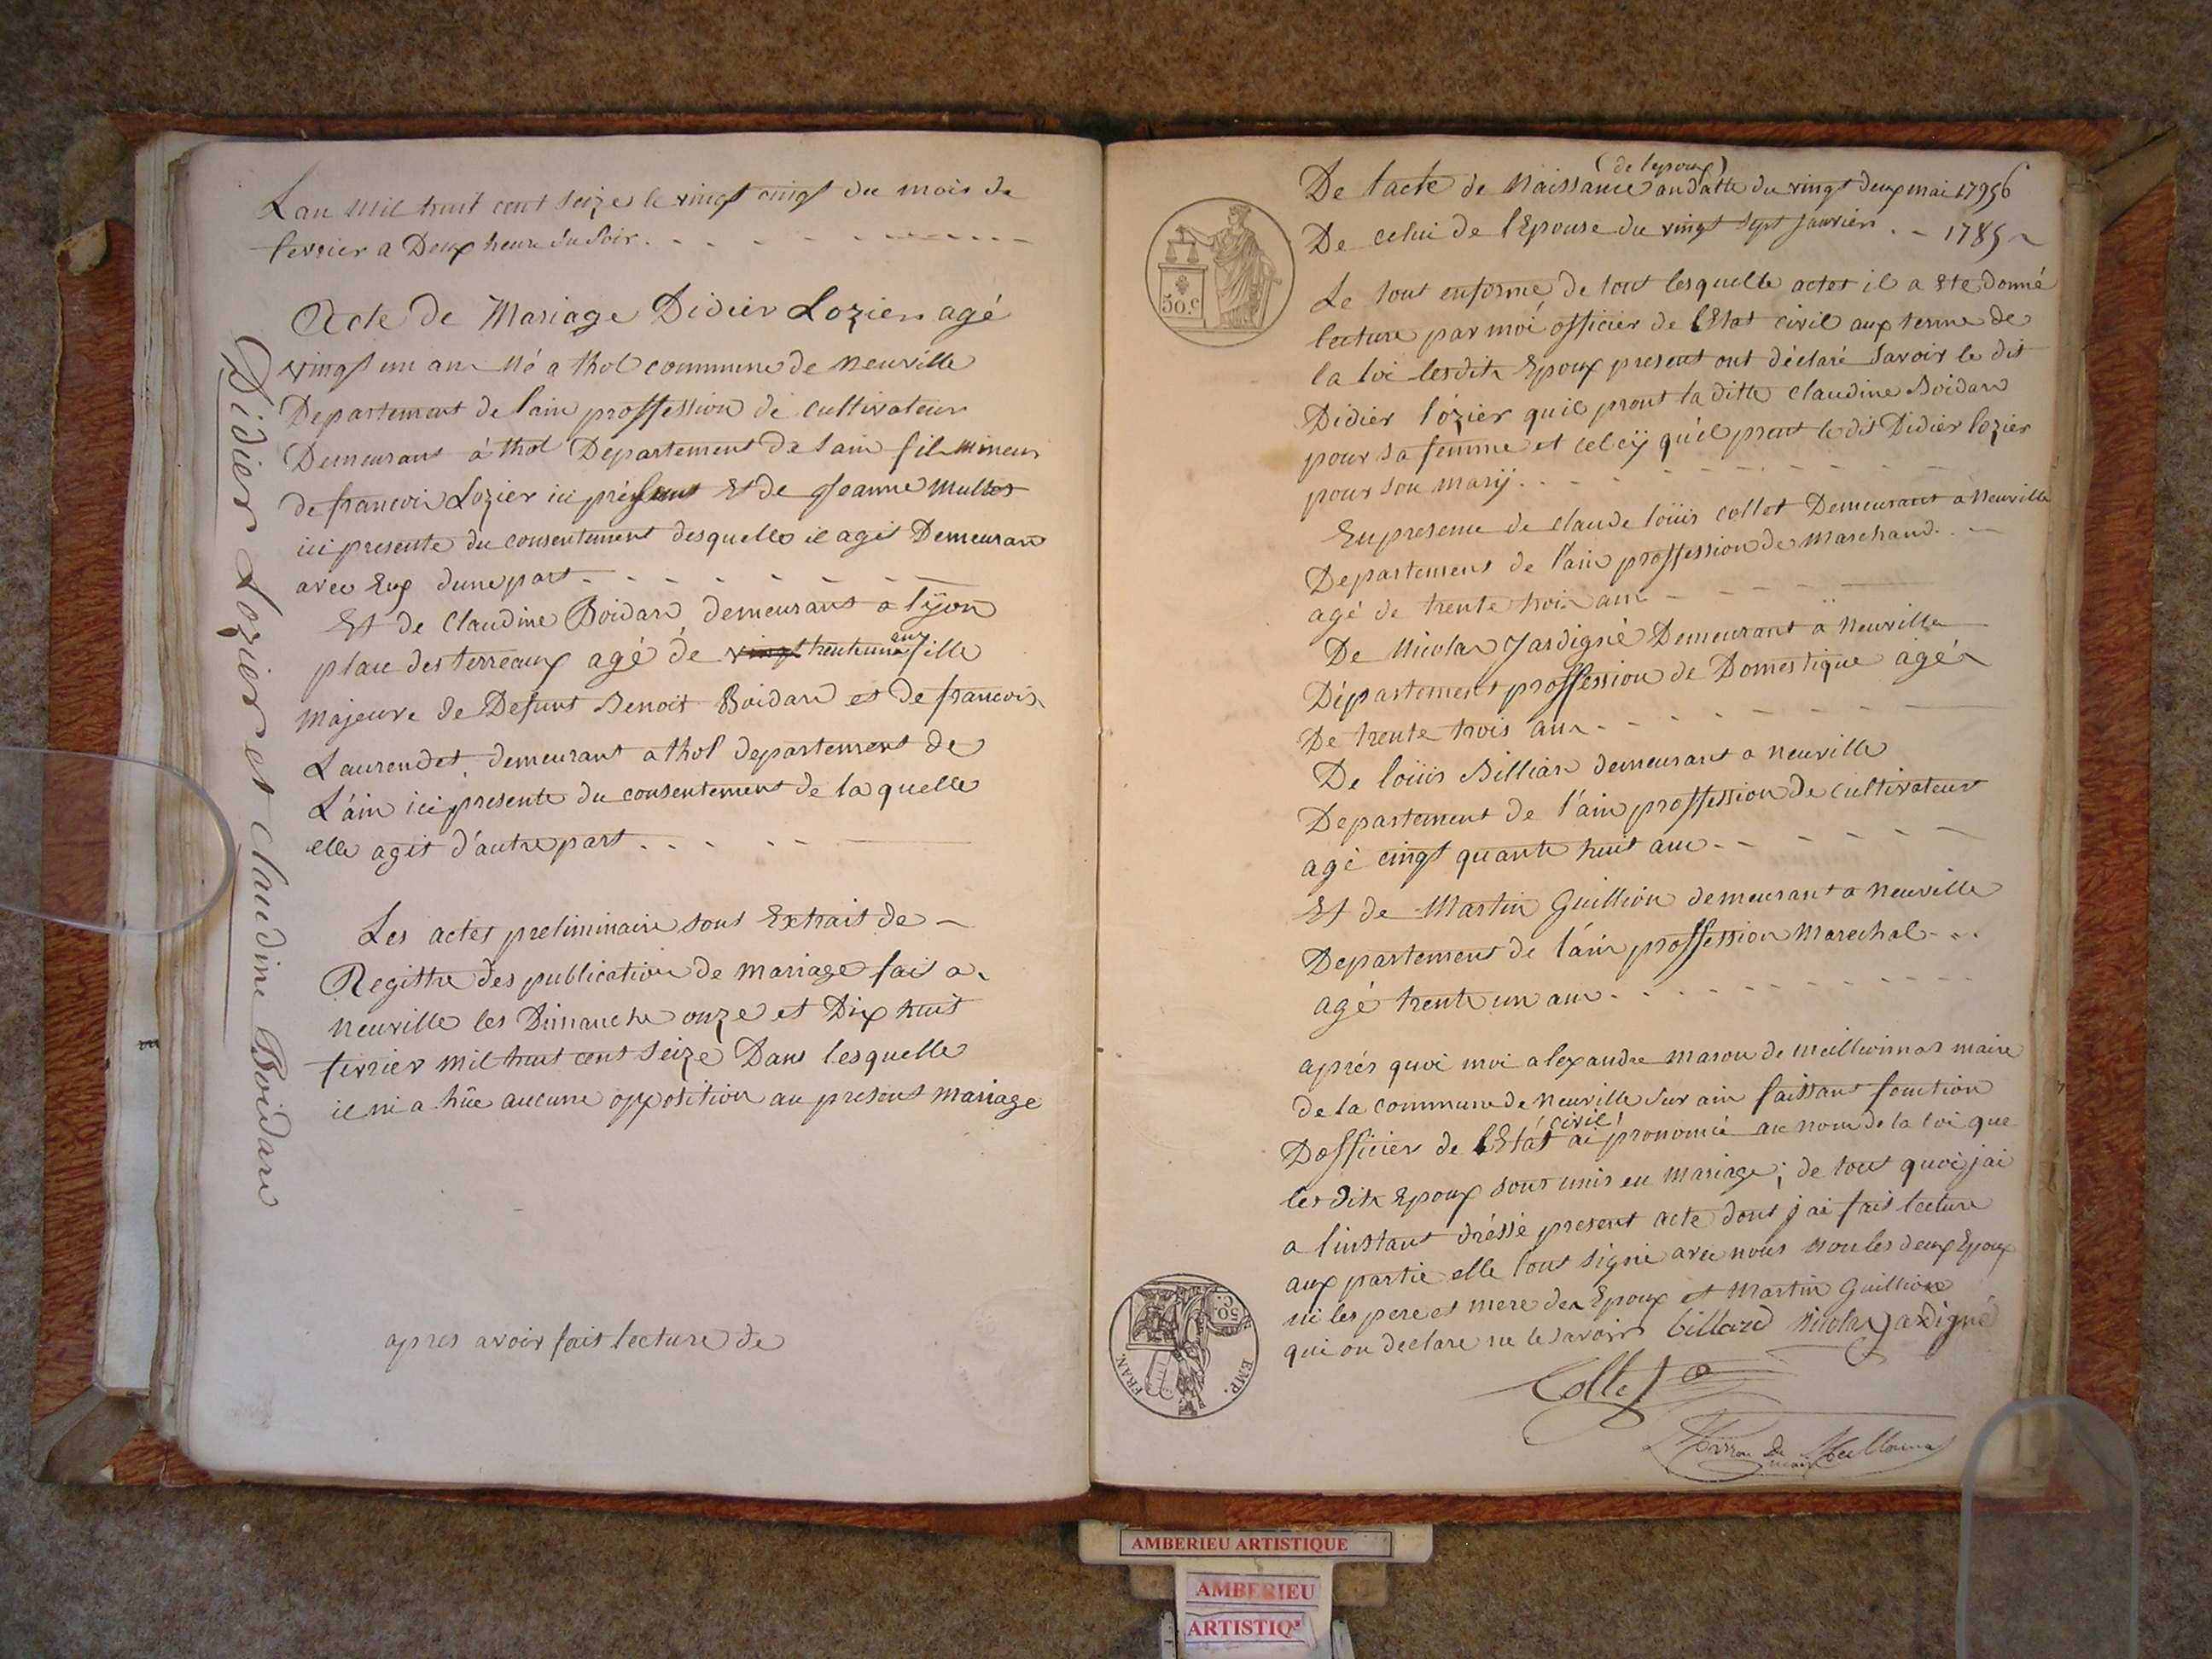 Lan Mil huit cent seize le vingt cinqt du mois de
fevrier a Deux heure du Soir
Acte de Mariage Didier Lozier agé
vingt un an Né a thol commune de Neuville
Departement de lain proffession de cultivateur
Demeurant à thol Departement de lain fils Mineur
de francois Lozier ici présent Et de Jeanne Mulles
ici presente du consentement desquelle il agit Demeurant
avec Eux dune part
Et de Claudine Boidard demeurant a lÿon
place des terreaux agé de vingt trente une ans fille
Majeure de Defunt Benoit Boidard et de francois
Laurendet demeurant a thol departement de
L'ain ici presente du consentement de la quelle
elle agit d'autre part
Les actes preliminaire sont Extrait de
Registre des publication de mariage fait a
Neuville les Dimanche onze et Dix huit
fevrier mil huit cent seize Dans lesquelle
il ni a hûe aucune opposition au present mariage
apres avoir fait lecture de
Didier Lozier et Claudine Boidard
(de lepoux)
De lacte de Naissance andatte du vingt deux mai 1795
De celui de l'Epouse du vingt sept Janvier 1785
Le tout enforme de tout lesquelle actes il a Ete donné
lecture par moi officier de l'Etat civil aux terme de
la loi lesdits Epoux present ont déclaré Savoir le dit
Didier lozier quil prent la ditte Claudine Boidard
pour sa femme et celcÿ quil prent le dit Didier lozier
pour son marÿ
En presence de Claude loüis collet Demeurant a Neuville
Departement de l'ain proffession de Marchand
agé de trente trois ans
De Nicolas Jardigné Demeurant a Neuville
Département proffession de Domestique agé
De trente trois ans
De loüis Billiard demeurant a Neuville
Departement de l'ain proffession de cultivateur
agé cinqt quante huit ans
Et de Martin Guillion demeurant a Neuville
Departement de l'ain proffession Marechal
agé trente un ans
aprés quoi moi alexandre mason de meillionnas maire
de la commune de Neuville Sur ain faissant fonction
Dofficier de l'Etat civil ai prononcé au nom de la loi que
les dits Epoux sont unis en mariage; de tout quoi jai
a l'instant dréssé present acte dont jai fait lecture
aux partie elle lont signé avec nous non les deux Epoux
ni les pere et mere des Epoux et Martin Guillion
qui on declare ne le savoir billard Nicolas Jardigné
Collet
Masson de Meillonnas
maire
50.c
50. C.
EMP. FRAN.
AMBERIEU ARTISTIQUE
AMBERIEU
ARTISTIQ